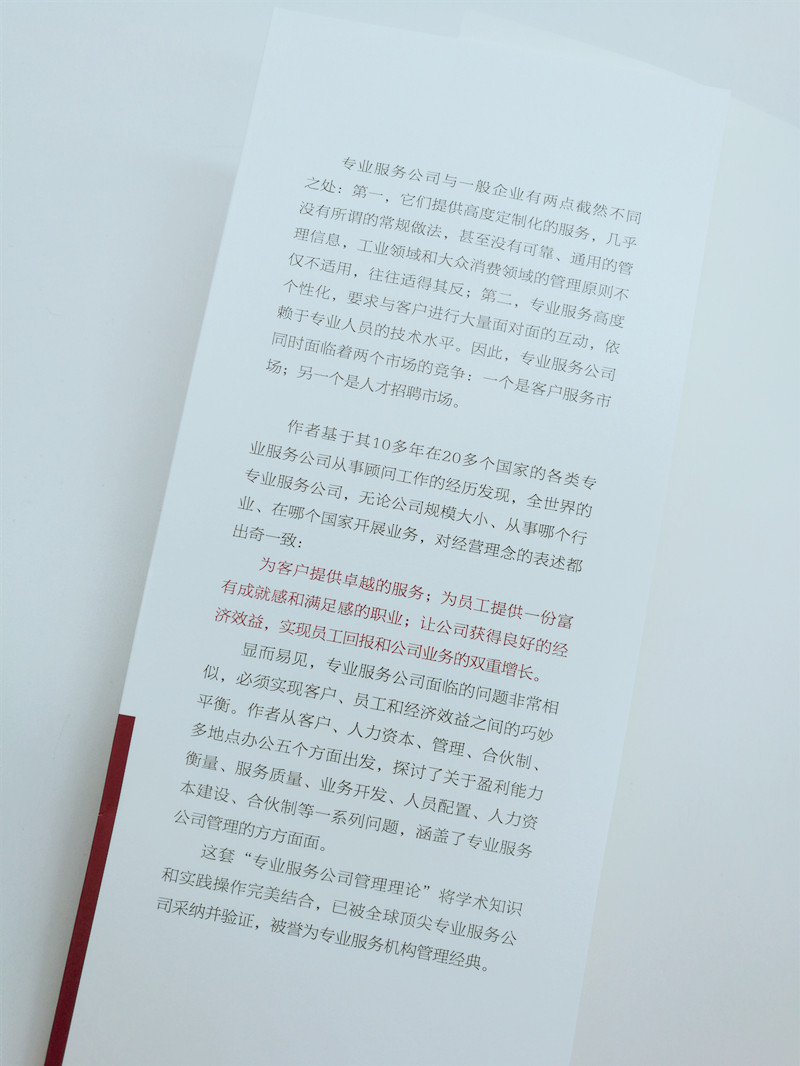 专业服务公司与一般企业有两点截然不同
之处：第一，它们提供高度定制化的服务，几乎
没有所谓的常规做法，甚至没有可靠、通用的管
理信息，工业领域和大众消费领域的管理原则不
仅不适用，往往适得其反；第二，专业服务高度
个性化，要求与客户进行大量面对面的互动，依
赖于专业人员的技术水平。因此，专业服务公司
同时面临着两个市场的竞争：一个是客户服务市
场；另一个是人才招聘市场。
作者基于其10多年在20多个国家的各类专
业服务公司从事顾问工作的经历发现，全世界的
专业服务公司，无论公司规模大小、从事哪个行
业、在哪个国家开展业务，对经营理念的表述都
出奇一致：
为客户提供卓越的服务；为员工提供一份富
有成就感和满足感的职业；让公司获得良好的经
济效益，实现员工回报和公司业务的双重增长。
显而易见，专业服务公司面临的问题非常相
似，必须实现客户、员工和经济效益之间的巧妙
平衡。作者从客户、人力资本、管理、合伙制、
多地点办公五个方面出发，探讨了关于盈利能力
衡量、服务质量、业务开发、人员配置、人力资
本建设、合伙制等一系列问题，涵盖了专业服务
公司管理的方方面面。
这套“专业服务公司管理理论”将学术知识
和实践操作完美结合，已被全球顶尖专业服务公
司采纳并验证，被誉为专业服务机构管理经典。